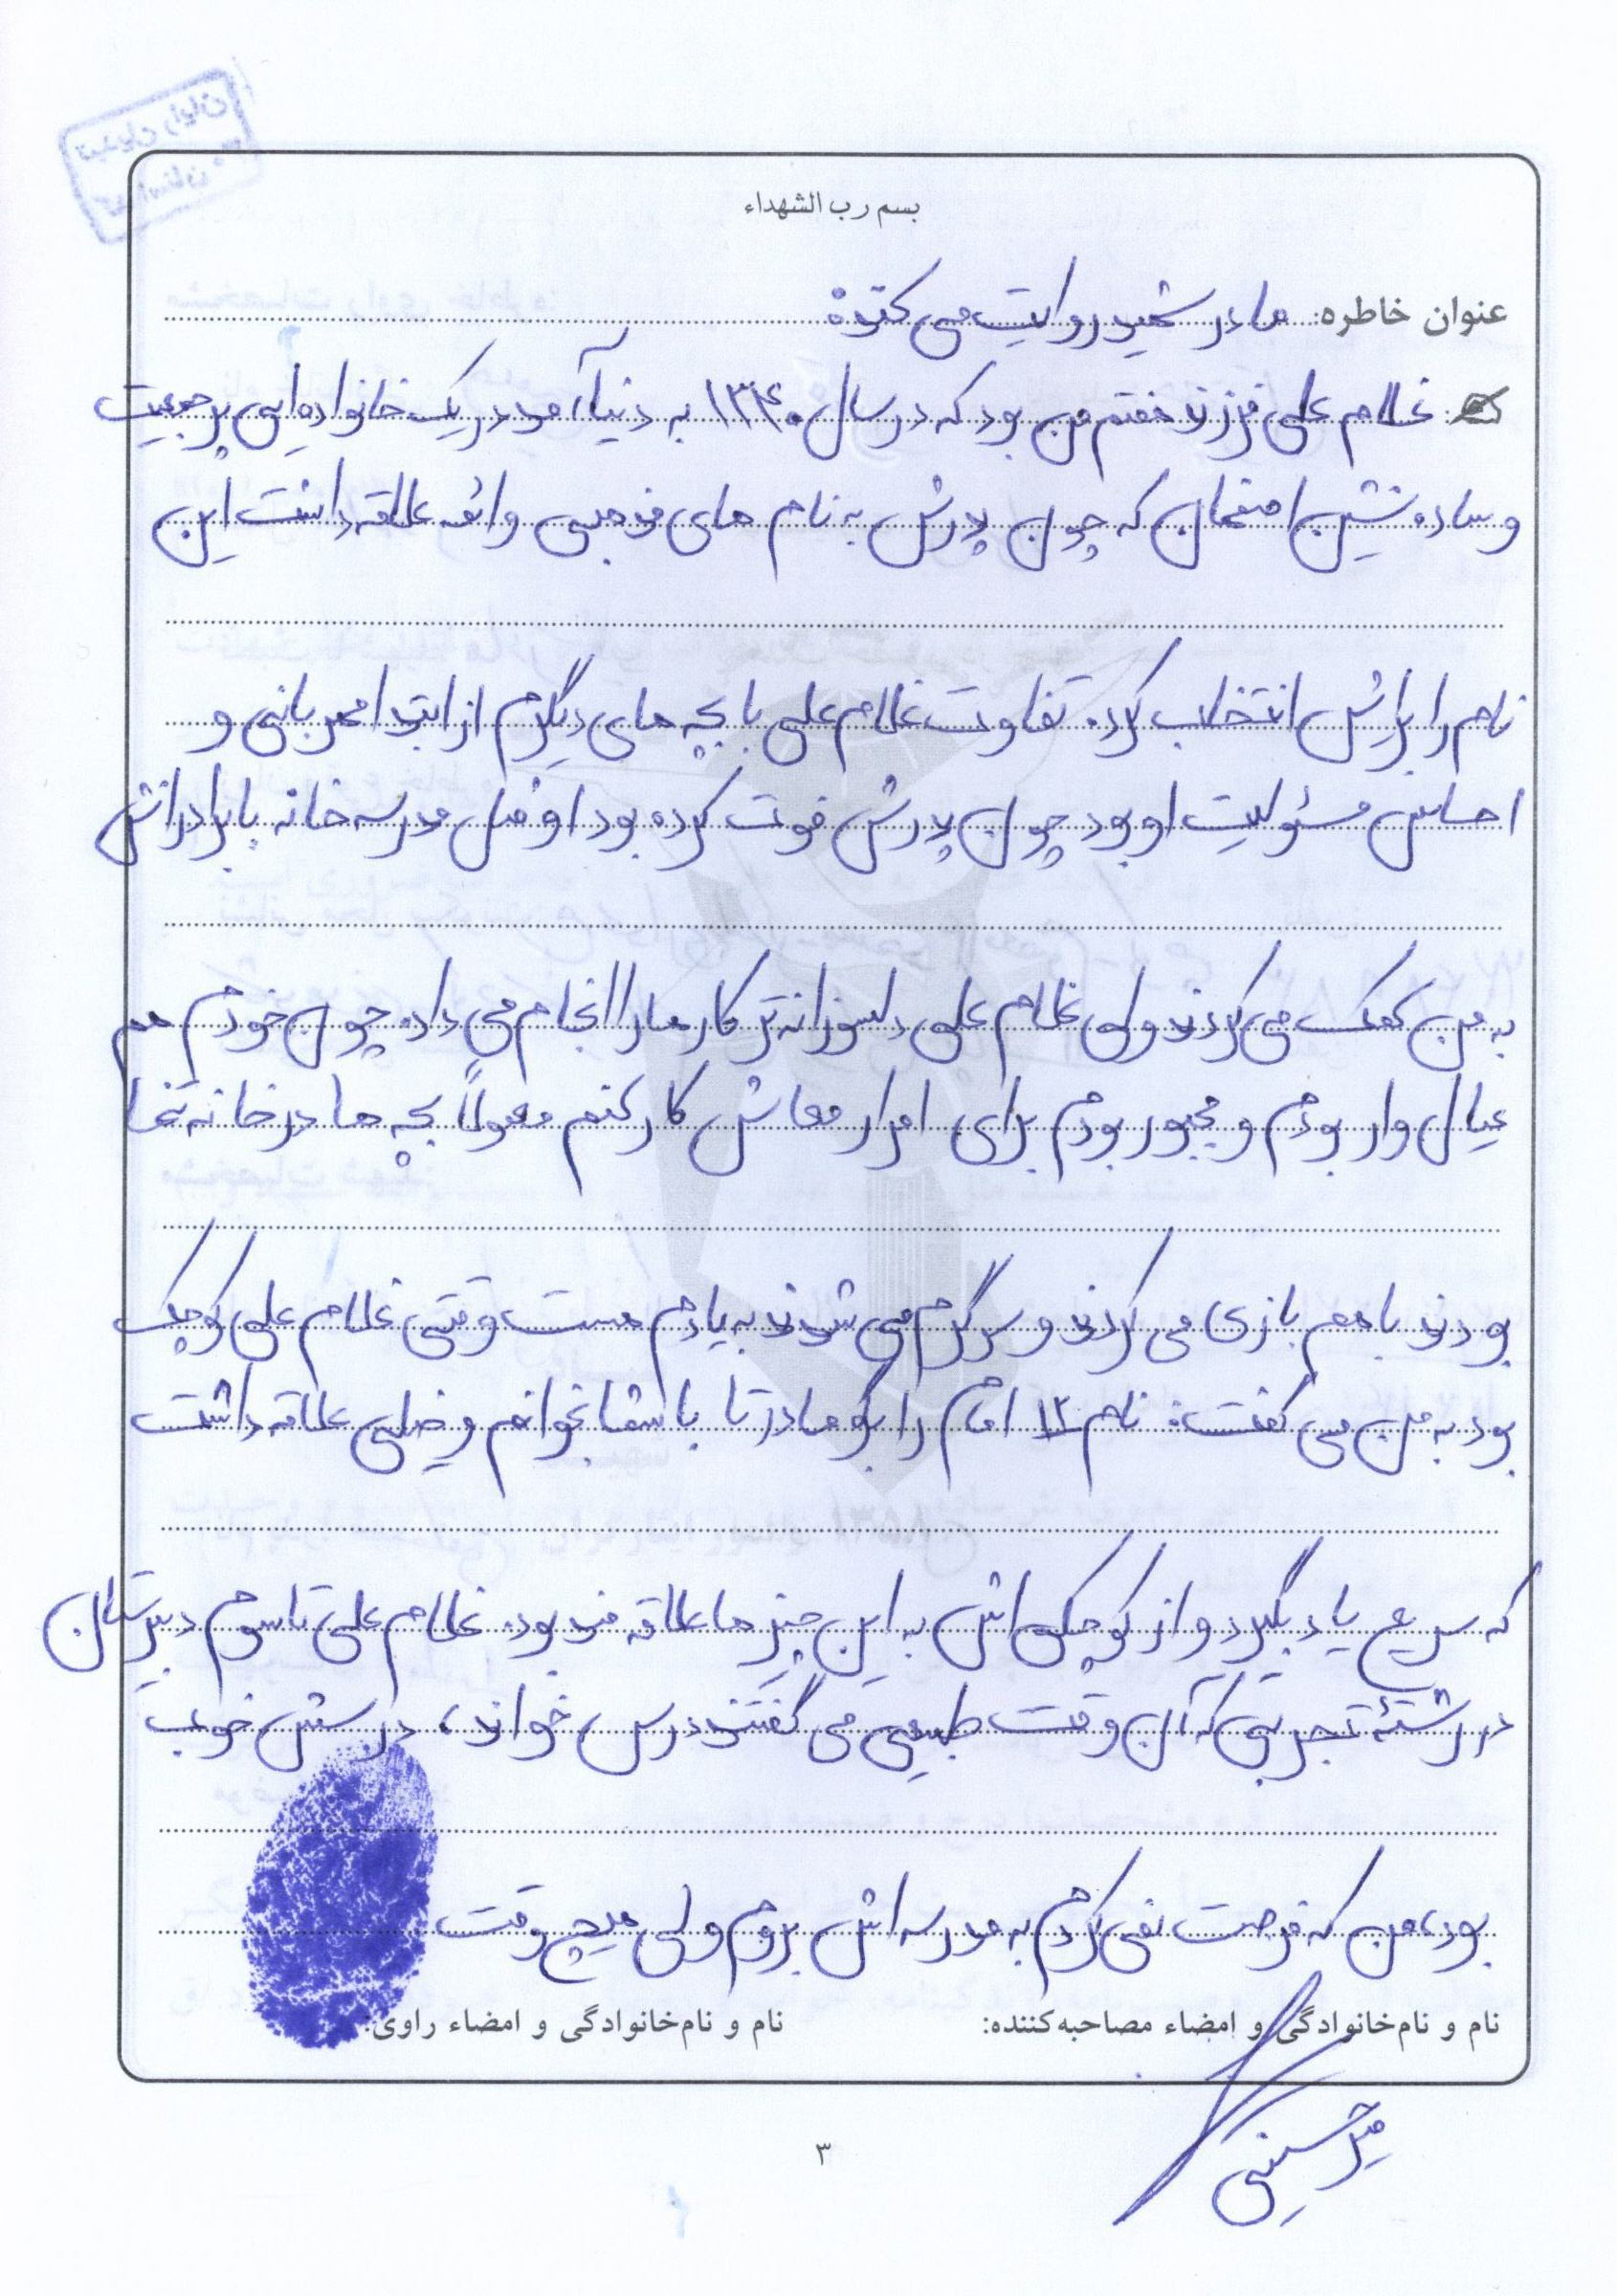 بسم رب الشهداء
عنوان خاطره: مادر شهید روایت می کند:
غلام علی فرزند هفتم من بود که در سال ۱۳۴۰ به دنیا آمد در یک خانواده ایی پرجمعیت
و ساده نشین اصفهان که چون پدرش به نام های مذهبی وائمه علاقه داشت این
نام را برایش انتخاب کرد. تفاوت غلام علی با بچه های دیگرم از ابتدا مهربانی و
احساس مسئولیت او بود چون پدرش فوت کرده بود او مدرسه خانه با برادرانش
به من کمک می کردند ولی غلام علی دلسوزانه تر کارها را انجام می داد. چون خودم هم
عیال وار بودم و مجبور بودم برای امرار معاش کار کنم معمولاً بچه ها در خانه تنها
بودند با هم بازی می کردند و سرگرم می شدند به یادم هست وقتی غلام علی کوچک
بود به من می گفت: نام ۱۲ امام را بگو مادر تا با شما بخوانم و خیلی علاقه داشت
که سریع یاد بگیرد و از کوچکی اش به این چیزها علاقه مند بود. غلام علی تا سوم دبیرستان
در رشتهٔ تجربی که آن وقت طبیعی می گفتند درس خواند، درسش خوب
بود، من که فرصت نمی کردم به مدرسه اش بروم ولی هیچ وقت
نام و نام‌خانوادگی و امضاء مصاحبه‌کننده:
نام و نام‌خانوادگی و امضاء راوی:
میرحسینی
۳